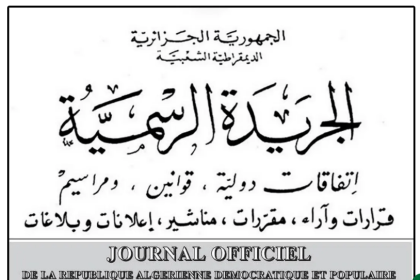 الجمهورية الجزائرية
الديمقراطية الشعبية
الجريدة الرسمية
إتفاقات دولية ، قوانين ، ومراسيم
قرارات وآراء ، مقررات ، مناشير ، إعلانات وبلاغات
JOURNAL OFFICIEL
DE LA REPUBLIQUE ALGERIENNE DEMOCRATIQUE ET POPULAIRE